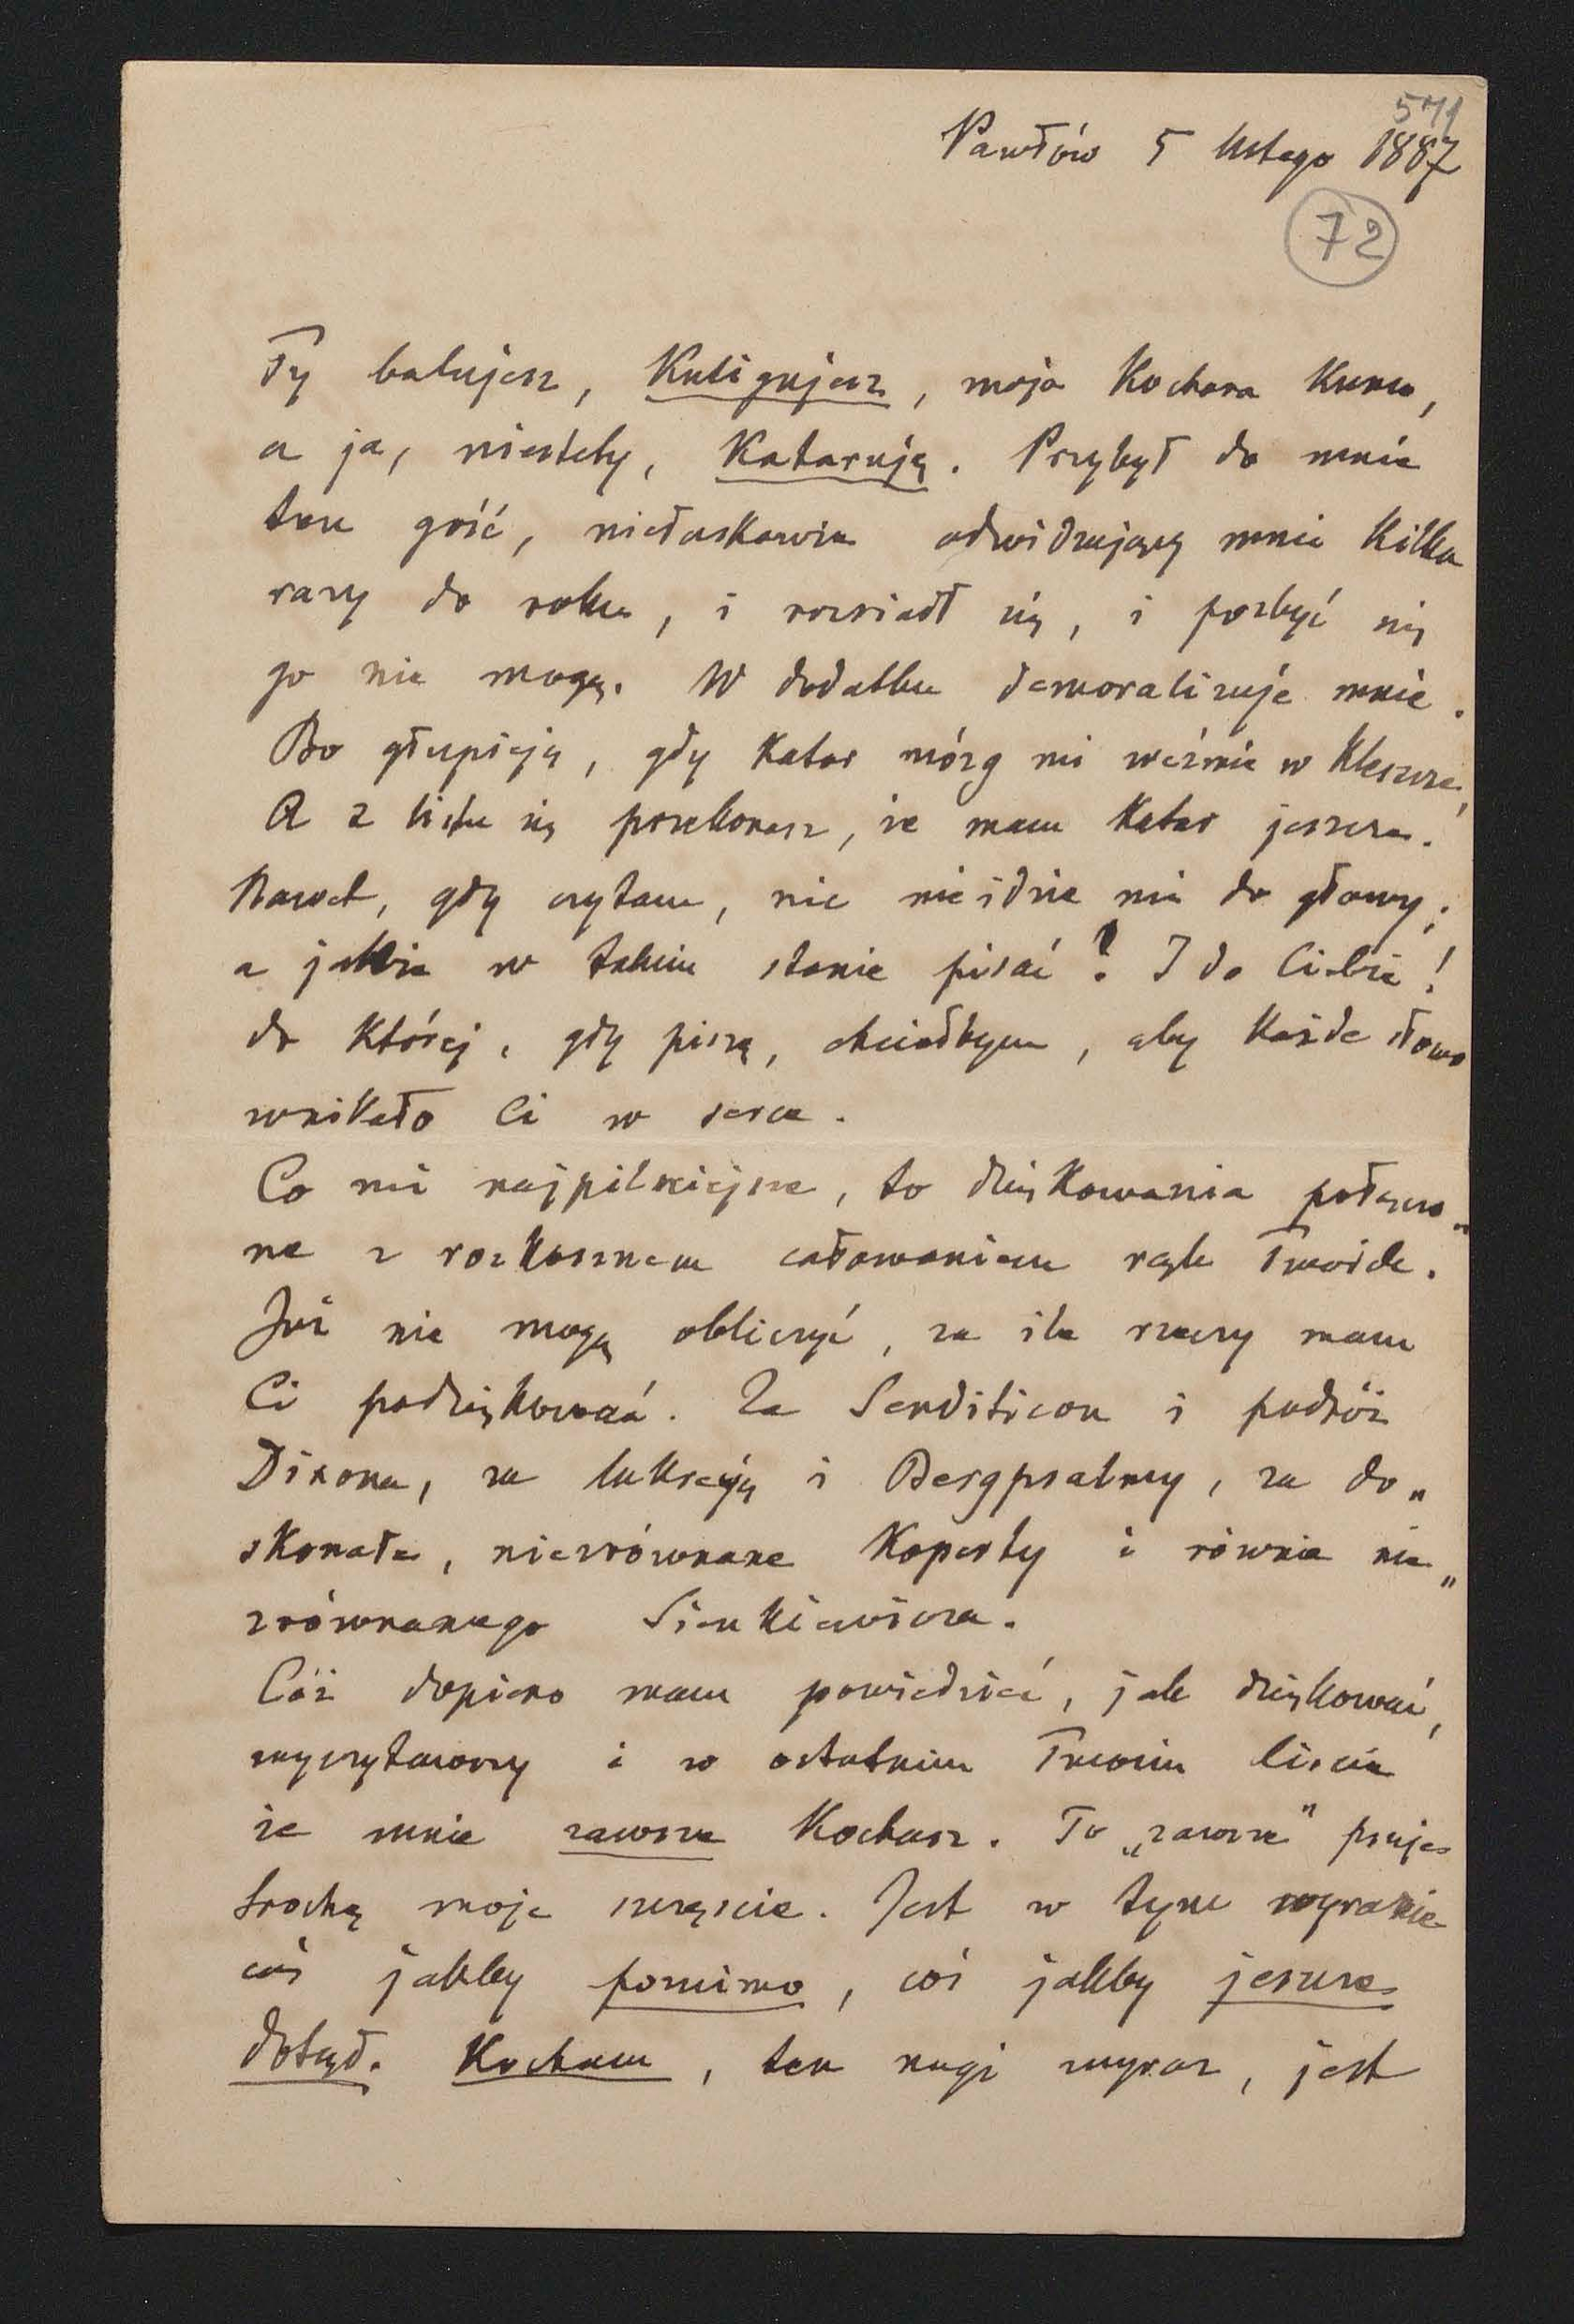 571
Pawłów 5 lutego 1887
72
Ty balujesz, Kuligujesz, moja Kochana Kuniu,
a ja, niestety, Kataruję. Przybył do mnie
ten gość, niełaskawie odwidzający mnie Kilka
razy do roku, i rozsiadł się, i pozbyć się
go nie mogę. W dodatku demoralizuje mnie.
Bo głupieję, gdy Katar mózg mi weźmie w Kleszcze,
A z listu się przekonasz, że mam Katar jeszcze.
Nawet, gdy czytam, nic nie idzie mi do głowy;
a jakże w takim stanie pisać? I do Ciebie!
do Której, gdy piszę, chciałbym, aby Każde słowo
wnikało Ci w serce.
Co mi najpilniejsze, to dziękowania połączo„
ne z rozkosznem całowaniem rąk Twoich.
Już nie mogę obliczyć, za ile rzeczy mam
Ci podziękować. Za Senditicon i podróż
Dixona, za lukrecję i Bergpsalmy, za do„
skonałe, niezrównane Koperty i równie nie„
zrównanego Sienkiewicza.
Cóż dopiero mam powiedzieć, jak dziękować,
wyczytawszy i w ostatnim Twoim liście
że mnie zawsze Kochasz. To „zawsze" psuje
trochę moje szczęście. Jest w tym wyrazie
coś jakby pomimo, coś jakby jeszcze
dotąd. Kocham, ten nagi wyraz, jest